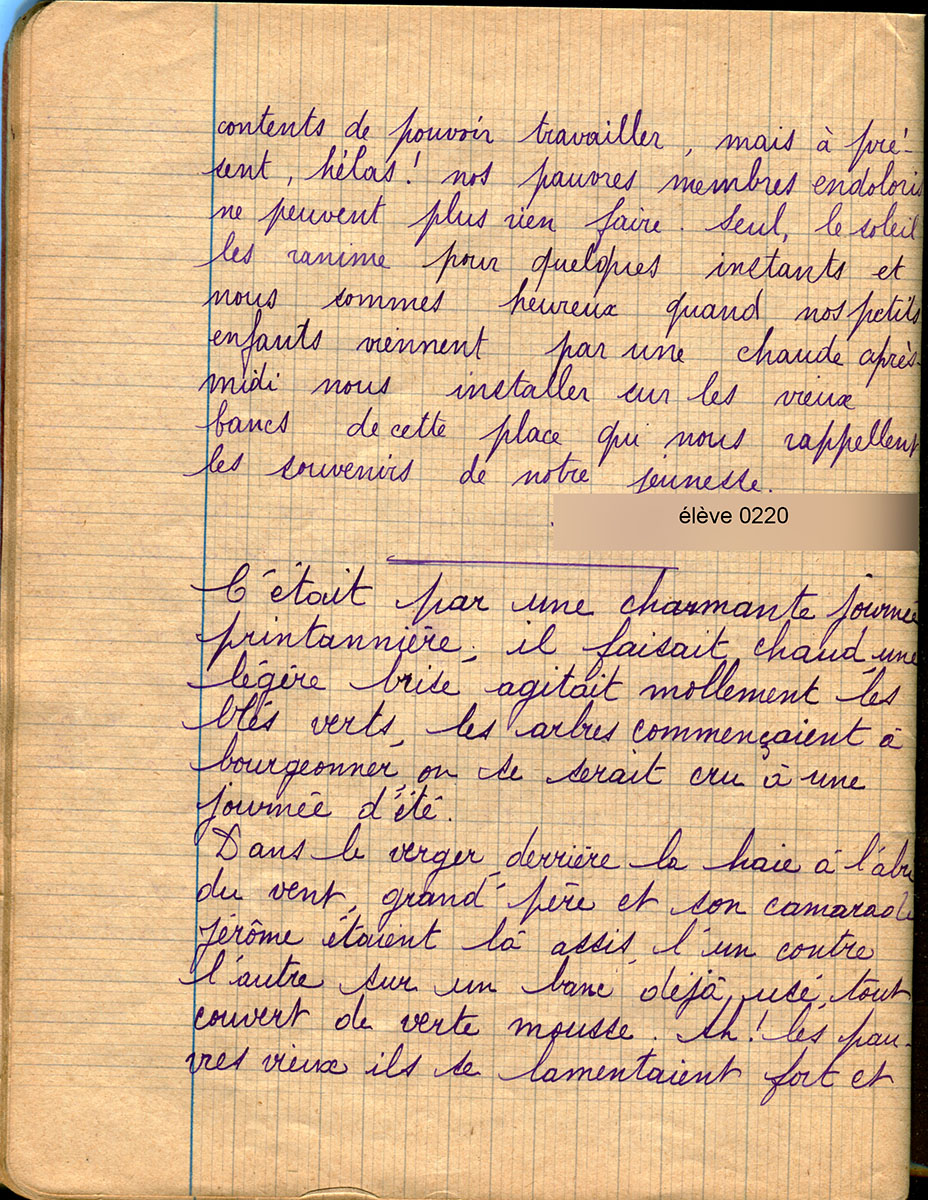 contents de pouvoir travailler, mais à pré-
sent, hélas! nos pauvres membres endoloris
ne peuvent plus rien faire. Seul, le soleil
les ranime pour quelques instants et
nous sommes heureux quand nos petits
enfants viennent par une chaude après-
midi nous installer sur les vieux
bancs de cette place qui nous rappellent
les souvenirs de notre jeunesse.
élève 0220
C'était par une charmante journée
printannière, il faisait chaud, une
légère brise agitait mollement les
blés verts, les arbres commençaient à
bourgeonner, on se serait cru à une
journée d'été.
Dans le verger, derrière la haie à l'abri
du vent, grand'père et son camarade
Jérôme étaient là assis, l'un contre
l'autre sur un banc déjà usé, tout
couvert de verte mousse. Ah! les pau-
vres vieux ils se lamentaient fort et